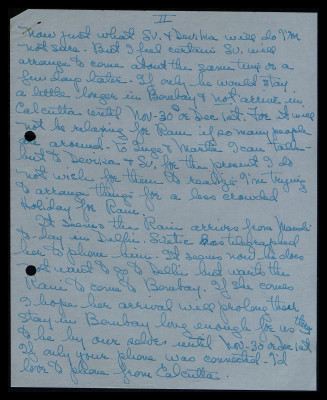 II
Now just what Sv. & Devika will do I'm
not sure. But I feel certain Sv. will
arrange to come about the same time or a
few days later. If only he would stay
a little longer in Bombay & not arrive in
Calcutta until Nov-30 or Dec 1st. For it will
not be relaxing for Rani if so many people
are around. to Inge & Martta I can talk-
but to Devika & Sv. for the present I do
not wish for them to realize I'm trying
to arrange things for a less crowded
Holiday for Rani.
It seems the Rani arrives from
to-day in Delhi. has telegraphed
her to phone him. It seems now he does
not want to go to Delhi but wants the
Rani to come to Bombay. If she comes
I hope her arrival will prolong their
stay in Bombay long enough for us three
to be by our selves until Nov-30 or Dec 1st
If only your phone was connected - I'd
love to phone from Calcutta.